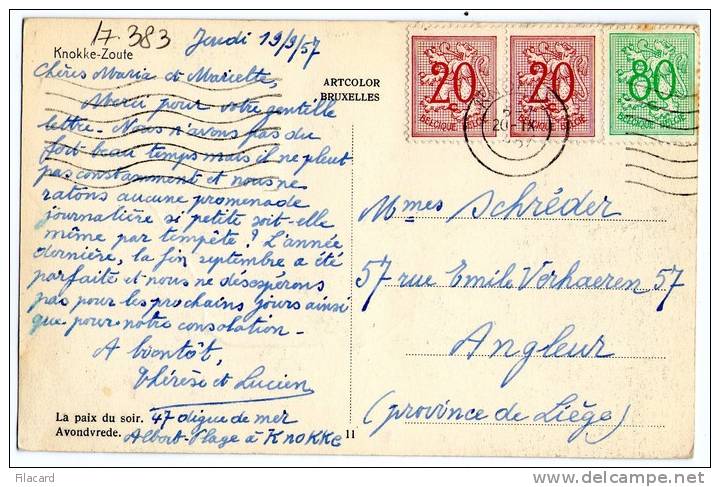 17.383
Jeudi 19/9/57
Knokke-Zoute
Chères Maria et Marcelle,
Merci pour votre gentille
lettre. Nous n'avons pas du
fort beau temps mais il ne pleut
pas constamment et nous ne
ratons aucune promenade
journalière si petite soit-elle
même par tempête! L'année
dernière, la fin septembre a été
parfaite et nous ne désespérons
pas pour les prochains jours ainsi
que pour notre consolation.
A bientôt,
Thérèse et Lucien
La paix du soir. 47 digue de mer
Avondvrede. Albert-Plage à KNOKKE
11
ARTCOLOR
BRUXELLES
20 20 80
BELGIQUE BELGIE BELGIQUE BELGIE BELGIQUE BELGIE
20 IX
Mmes Schréder
57 rue Emile Verhaeren 57
Angleur
(province de Liège)
Filacard
www.delcampe.net